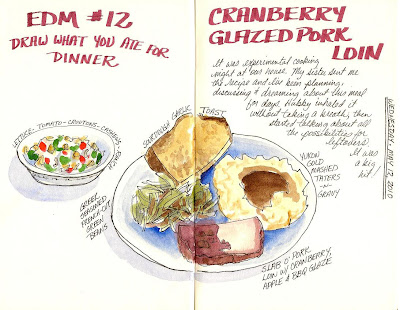 EDM #12
DRAW WHAT YOU ATE FOR
DINNER
LETTUCE-TOMATO-CROUTONS-CASHEWS-RANCH
SOURDOUGH GARLIC
TOAST
GREEN
FRENCH-CUT
GREEN
BEANS
CRANBERRY
GLAZED PORK
LOIN
It was experimental cooking
night at our house. My sister sent me
the recipe and I've been planning,
discussing & dreaming about this meal
for days. Hubby inhaled it
without taking a breath, then
started talking about all
the possibilities for
leftovers!
It was
a big
hit!
YUKON
GOLD
MASHED
TATERS
-N-
GRAVY
SLAB O' PORK
LOIN W/ CRANBERRY,
APPLE & BBQ GLAZE
WEDNESDAY - MAY 12, 2010